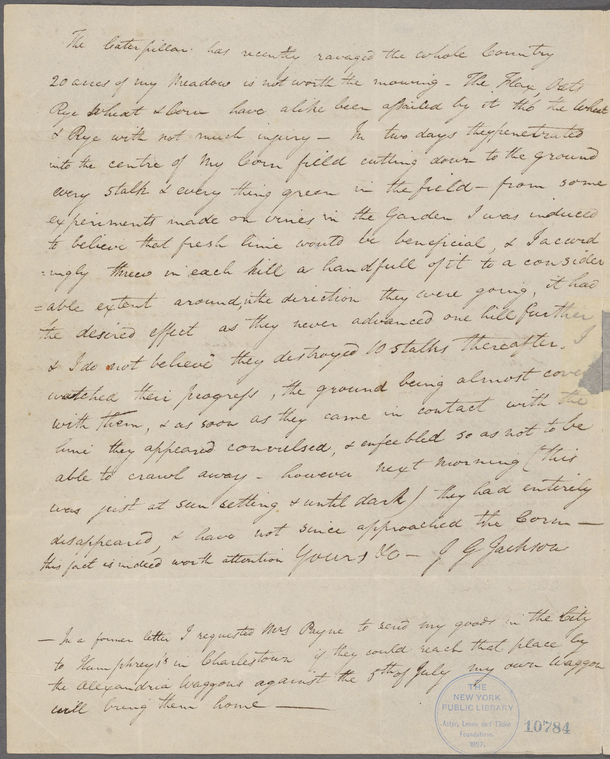 The Caterpillar has recently ravaged the whole Country
20 acres of my Meadow is not worth the mowing - The Flax, Oats
Rye Wheat & Corn have alike been assailed by it tho' the Wheat
& Rye with not much injury - In two days they penetrated
into the centre of my Corn field cutting down to the ground
every stalk & every thing green in the field - from some
experiments made on vines in the Garden I was induced
to believe that fresh lime would be beneficial, & I accord
=ingly threw in each hill a handfull of it to a consider
=able extent around, in the direction they were going, it had
the desired effect as they never advanced one hill further
& I do not believe they destroyed 10 stalks thereafter. I
watched their progress, the ground being almost cove
with them, & as soon as they came in contact with the
lime they appeared convulsed, & enfeebled so as not to be
able to crawl away - however next morning (this
was just at sun setting & until dark) they had entirely
disappeared, & have not since approached the Corn -
this fact is indeed worth attention Yours &c - J G Jackson
- In a former letter I requested Mrs Payne to send my goods in the City
to Humphrey's in Charlestown if they could reach that place by
the Alexandria Waggons against the 5th of July my own Waggon
will bring them home -
THE
NEW YORK
PUBLIC LIBRARY
Astor, Lenox and Tilden
Foundations
1897
10784